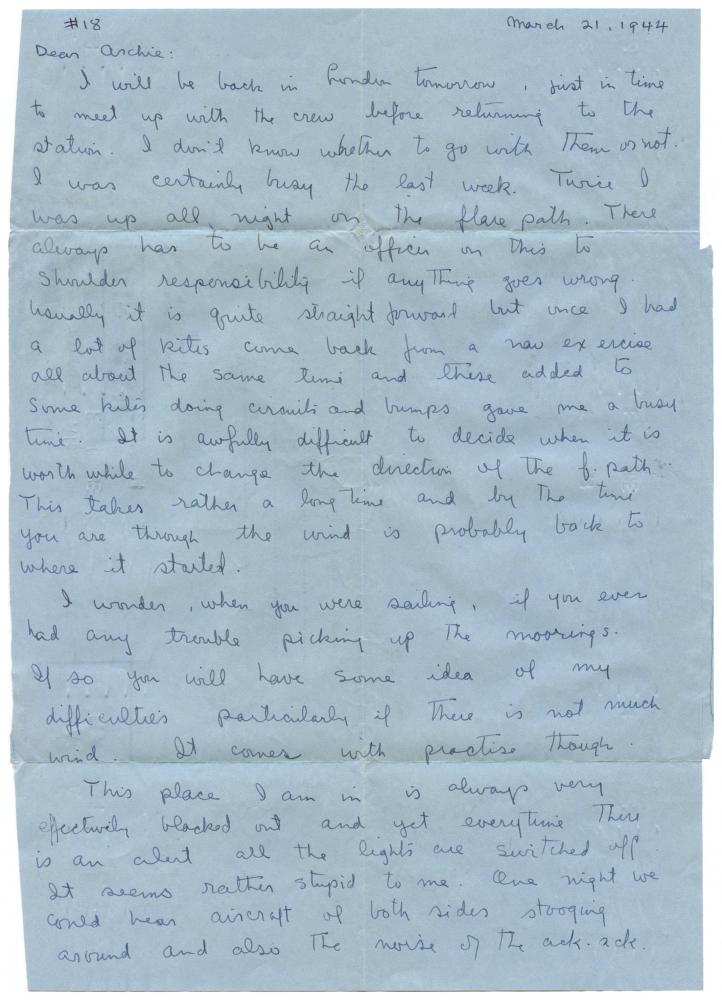 #18 March 21, 1944
Dear Archie:
I will be back in London tomorrow, just in time
to meet up with the crew before returning to the
station. I don't know whether to go with them or not.
I was certainly busy the last week. Twice I
was up all night on the flare path. There
always has to be an officer on this to
shoulder responsibility if anything goes wrong.
Usually it is quite straight forward but once I had
a lot of kites come back from a nav exercise
all about the same time and these added to
some kites doing circuits and bumps gave me a busy
time. It is awfully difficult to decide when it is
worth while to change the direction of the f. path.
This takes rather a long time and by the time
you are through the wind is probably back to
where it started.
I wonder, when you were sailing, if you ever
had any trouble picking up the moorings.
If so you will have some idea of my
difficulties particularly if there is not much
wind. It comes with practise though.
This place I am in is always very
effectively blacked out and yet everytime there
is an alert all the lights are switched off.
It seems rather stupid to me. One night we
could hear aircraft of both sides stooging
around and also the noise of the ack-ack.